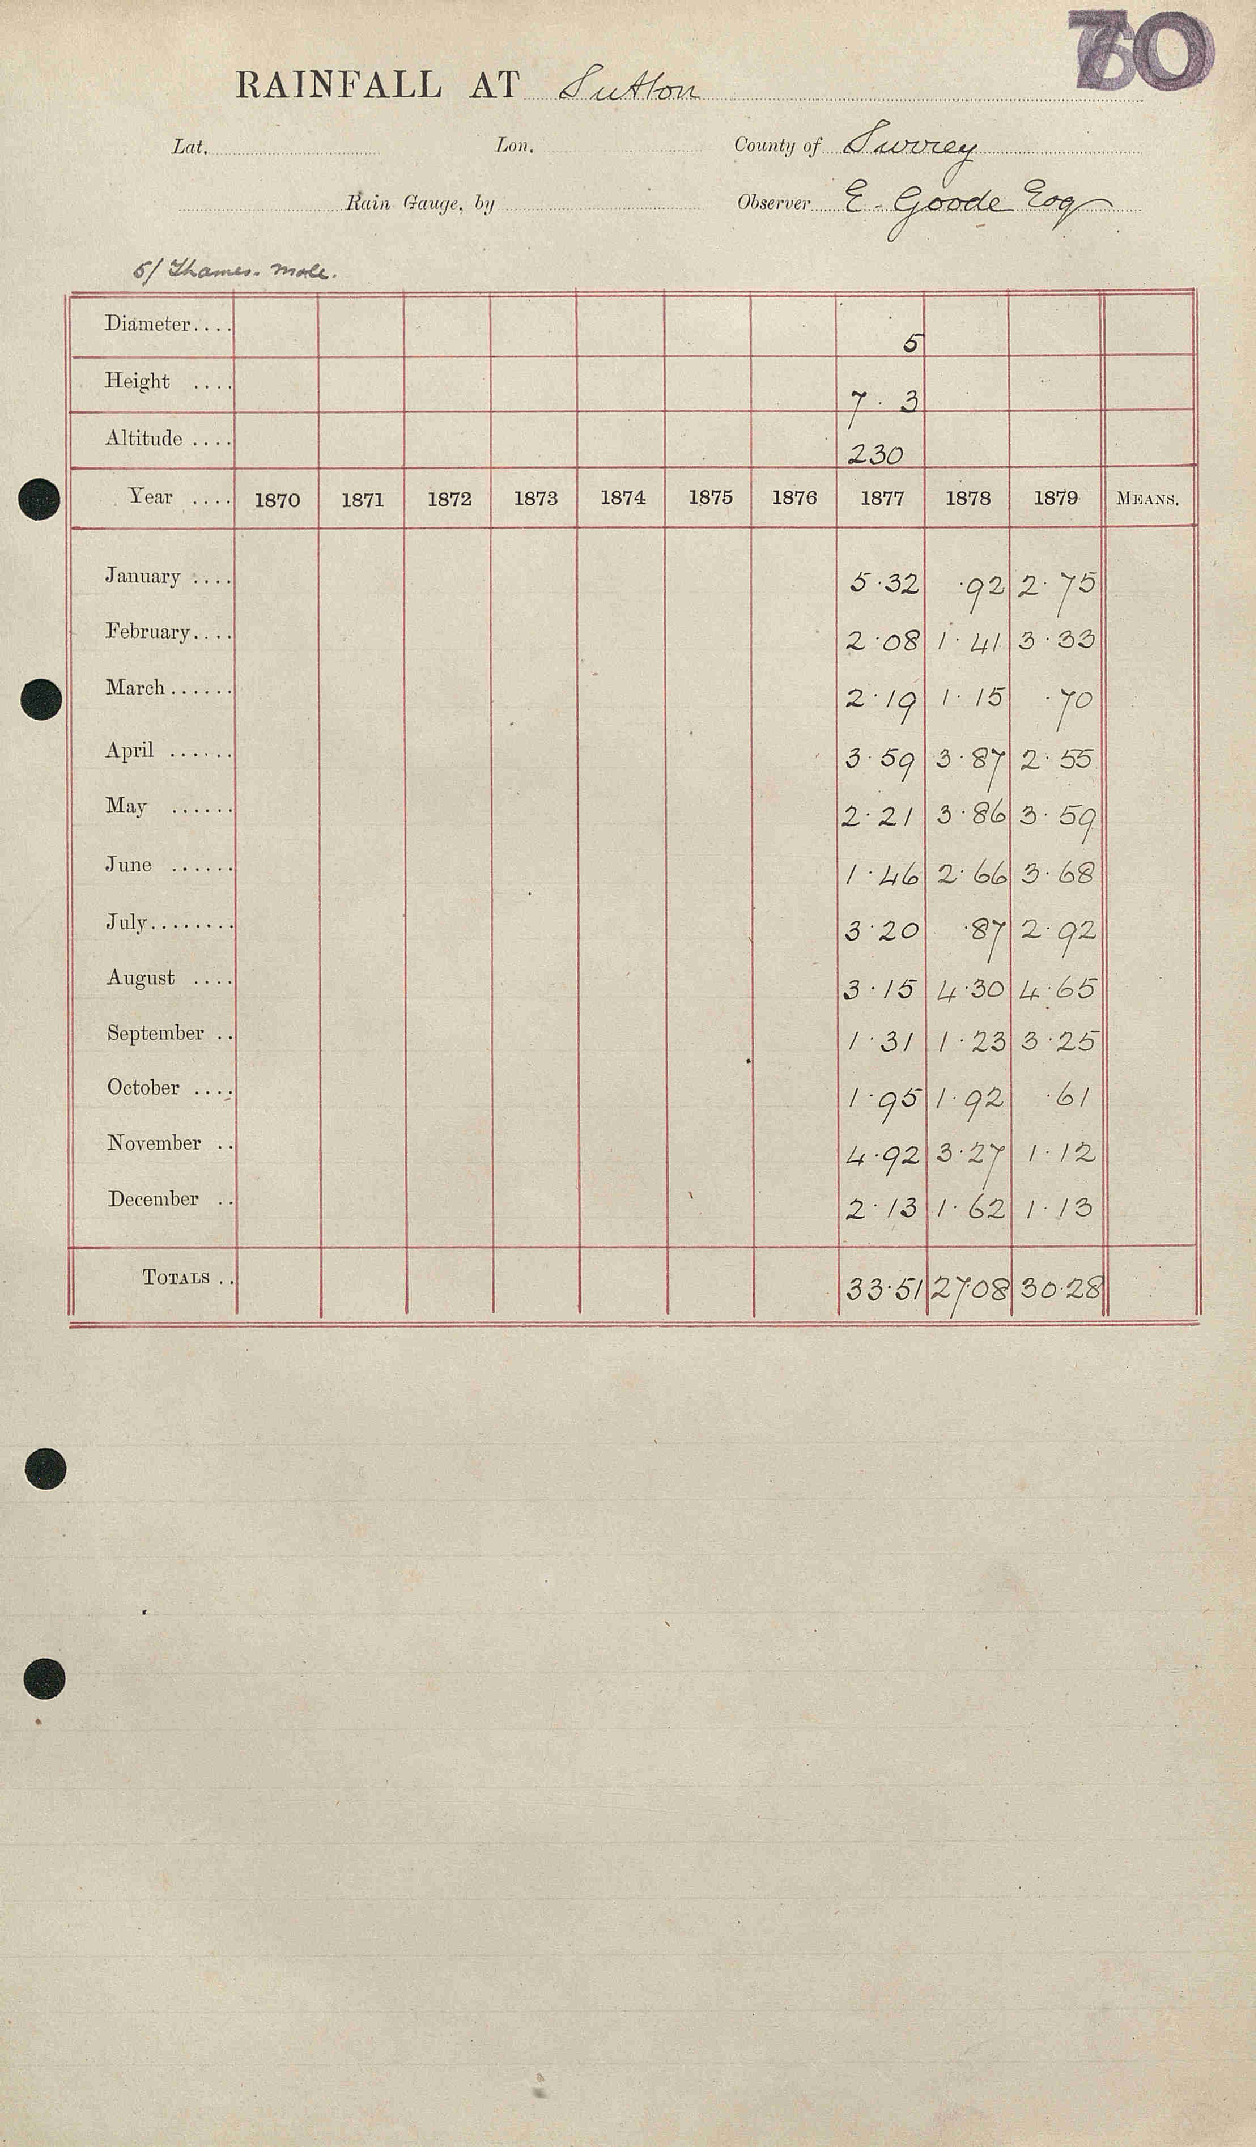 70
RAINFALL AT Sutton
Lat. Lon. County of Surrey
Rain Gauge, by Observer E. Goode Esq
5/ Thames. Mole.
Diameter.... 5
Height .... 7. 3
Altitude .... 230
Year .... 1870 1871 1872 1873 1874 1875 1876 1877 1878 1879 MEANS.
January .... 5.32 .92 2.75
February.... 2.08 1.41 3.33
March...... 2.19 1.15 .70
April ...... 3.59 3.87 2.55
May ...... 2.21 3.86 3.59
June ...... 1.46 2.66 3.68
July........ 3.20 .87 2.92
August .... 3.15 4.30 4.65
September .. 1.31 1.23 3.25
October .... 1.95 1.92 .61
November .. 4.92 3.27 1.12
December .. 2.13 1.62 1.13
TOTALS .. 33.51 27.08 30.28